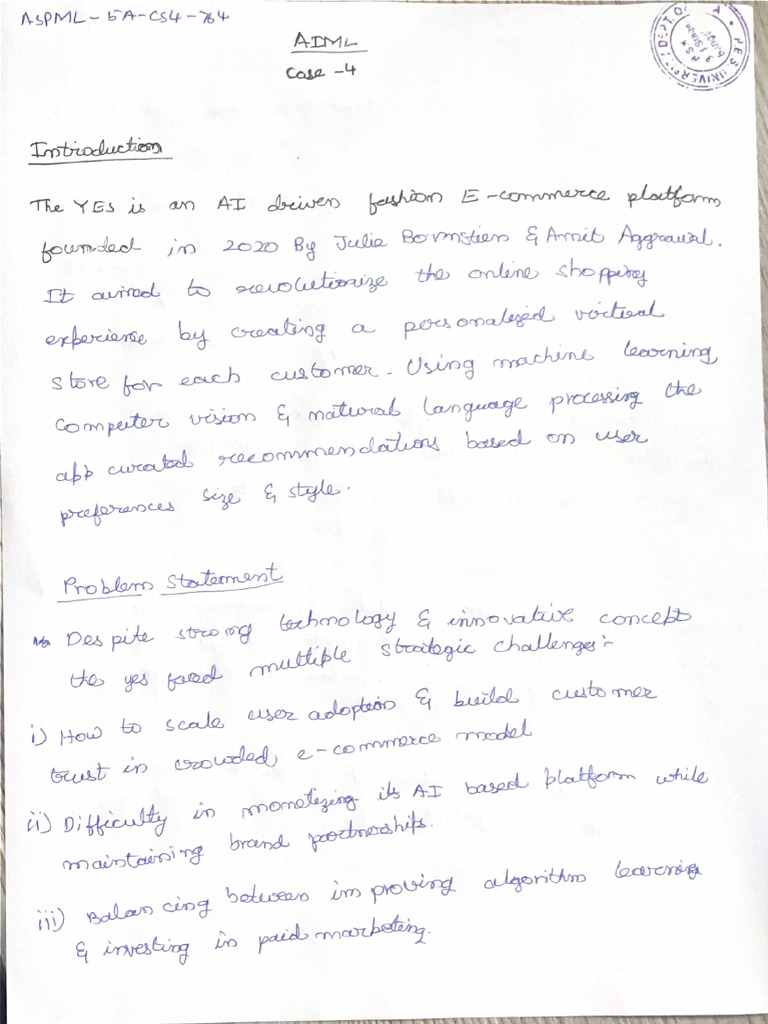 ASPML - 5A - CS4 - 764
AIML
Case - 4
DEPT. OF
PES UNIVERSITY
Introduction
The YES is an AI driven fashion E-commerce platform
founded in 2020 By Julie Bornstien & Amit Aggrawal.
It aimed to revolutionize the online shopping
experience by creating a personalized virtual
store for each customer. Using machine learning,
computer vision & natural language processing the
app curated recommendations based on user
preferences size & style.
Problem Statement
Despite strong technology & innovative concept
the yes faced multiple strategic challenges:-
i) How to scale user adoption & build customer
trust in crowded e-commerce model
ii) Difficulty in monetizing its AI based platform while
maintaining brand partnerships.
iii) Balancing between improving algorithm learning
& investing in paid marketing.